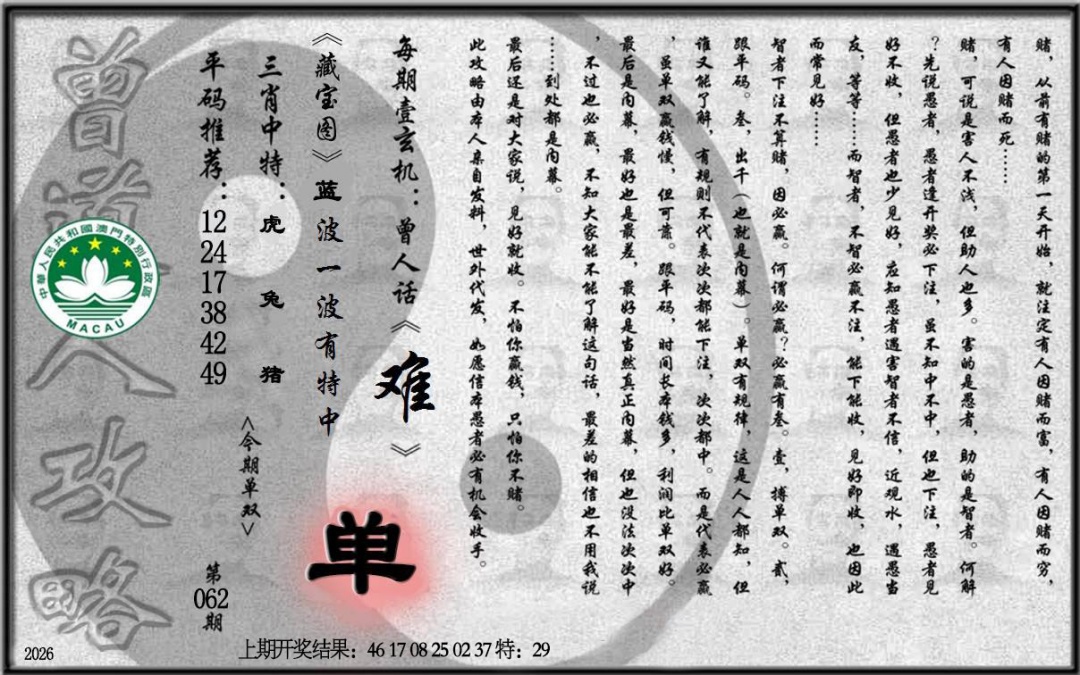 赌，从前有赌的第一天开始，就注定有人因赌而富，有人因赌而穷，
有人因赌而死……
赌，可说是害人不浅，但助人也多。害的是愚者，助的是智者。何解
？先说愚者，愚者逢开奖必下注，虽不知中不中，但也下注，愚者见
好不收，但愚者也少见好，应知愚者遇害智者不信，近观水，遇愚当
友，等等……而智者，不智必赢不注，能下能收，见好即收，也因此
而常见好……
智者下注不算赌，因必赢。何谓必赢？必赢有叁。壹，搏单双。贰，
跟平码。叁，出千（也就是内幕）。单双有规律，这是人人都知，但
谁又能了解，有规则不代表次次都能下注，次次都中。而是代表必赢
，虽单双赢钱慢，但可靠。跟平码，时间长本钱多，利润比单双好。
最后是内幕，最好也是最差，最好是当然真正内幕，但也没法次次中
，不过也必赢，不知大家能不能了解这句话，最差的相信也不用我说
……到处都是内幕。
最后还是对大家说，见好就收。不怕你赢钱，只怕你不赌。
此攻略由本人亲自发料，世外代发，如愿信本愚者必有机会收手。
每期壹玄机：曾人话《难》
《藏宝图》蓝波一波有特中
单
三肖中特：虎 兔 猪
<今期单双>
平码推荐：12 24 17 38 42 49
第062期
曾道人攻略
中華人民共和國澳門特別行政區
MACAU
2026
上期开奖结果：46 17 08 25 02 37 特：29